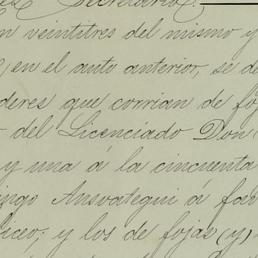 Secretario.
n veintitres del mismo y
, en el auto anterior, se de
deres que corrian de fo
del Licenciado Don
y una á la cincuenta
ingo Ansoategui á fa
liceo; y los de fojas (y)